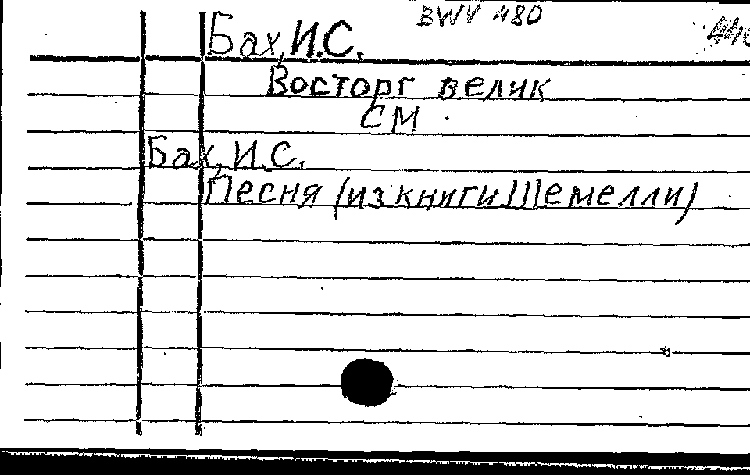 BWV 480
Бах, И.С.
Восторг велик
СМ
Бах, И.С.
Песня (из книги Шемелли)